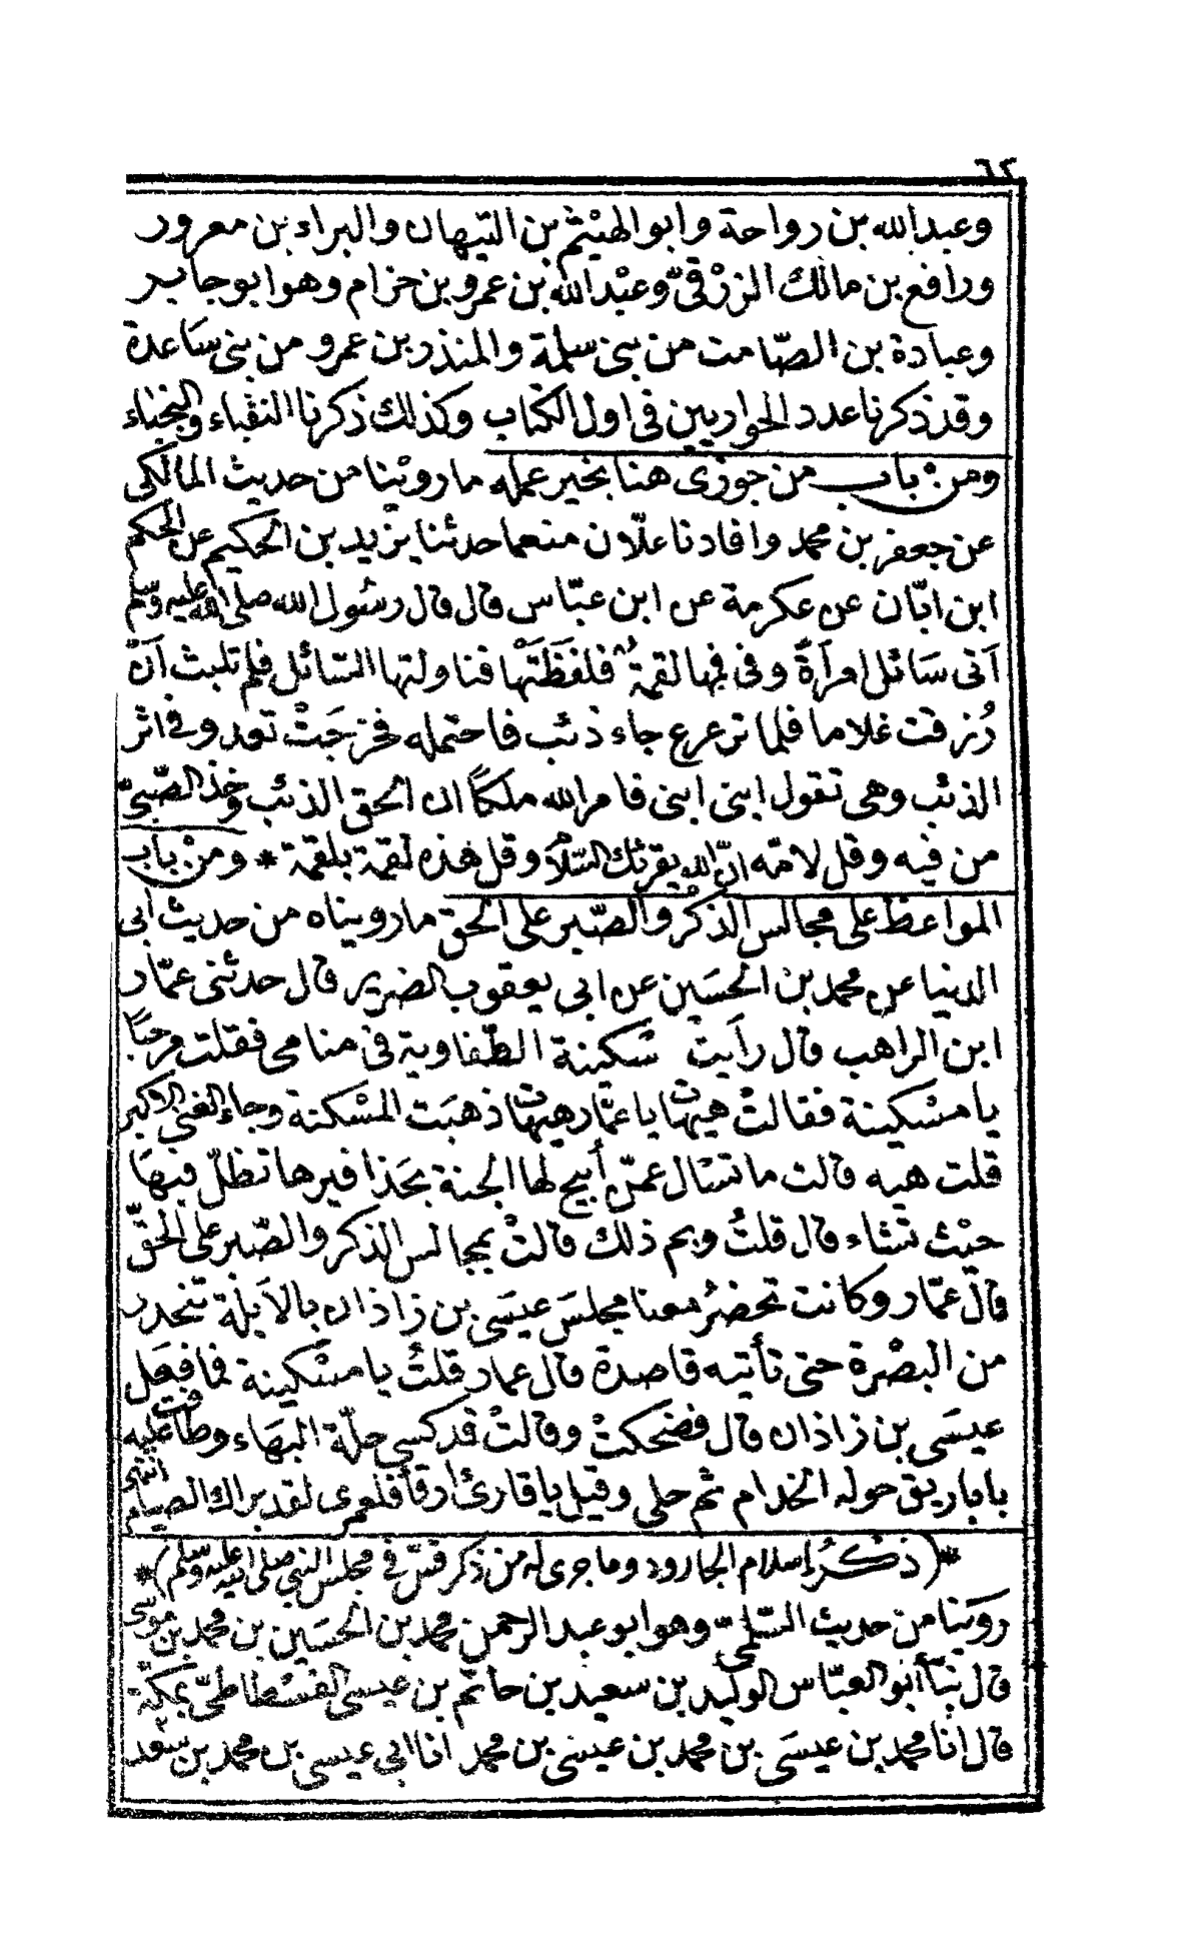 ٦٢
وعبدالله بن رواحة وابو الهيْثم بن التيهان والبراء بن معرور
ورافع بن مالك الزرْقىّ وعبْد الله بن عمرو بن حزام وهو ابو جابر
وعبادة بن الصّامت من بنى سلمة والمنذر بن عمرو من بنى سَاعدة
وقد ذكرنا عدد الحواريين فى اول الكتاب وكذلك ذكرنا النقباء والنجباء
ومن باب من جوزى هنا بخير عمله ما روينا من حديث المالكى
عن جعفر بن محمد وافادنا علّان منعما حدثنا يزيد بن الحكيم عن الحكم
ابن ابّان عن عكرمة عن ابن عبّاس قال قال رسُول الله صلى الله عليه وسلم
اَتى سَائل امرأةً وفى فيها لقمةٌ فلفظَتْها فناولتها السّائل فلم تلبث اَنّ
رُزقت غلاما فلما ترعرع جاء ذئب فاحتمله فخرجَتْ تعدو فى اثر
الذئب وهى تقول ابنى ابنى فامر الله ملكًا ان الحق الذئب وخذ الصّبىّ
من فيه وقل لامّه انّ الله يقرئك السّلام وقل هذه لقمة بلقمة * ومن باب
المواعظ على مجالس الذكر والصّبر على الحق ما رويناه من حديث ابى
الدنيا عن محمد بن الحسَين عن ابى يعقوب الضرير قال حدثنى عمّار
ابن الراهب قال رأيت سَكينة الطّفاوية فى منامى فقلت مرحبًا
يا مسْكينة فقالتْ هيهات يا عمّار هيهات ذهبَت المسْكنة وجاء الغنى الاكبر
قلت هيه قالت ما تسْال عمّن أبيح لها الجنة بحَذافيرها تظلّ فيها
حيْث تشاء قال قلتُ وبم ذلك قالتْ بمجالس الذكر والصّبر على الحقّ
قال عمّار وكانت تحضرُ معنا مجلسَ عيسَى بن زاذان بالاَبلّة تنحدر
من البصْرة حتى تأتيه قاصدة قال عمار قلتُ يا مسْكينة فما فعَل
عيسَى بن زاذان قال فضحكتْ وقالتْ قد كسى حلّة البهَاء وطافت عليه
باباريق حوله الخدام ثم حلى وقيل يا قارئ ارقأ فلعمرى لقد براك الصيام انتهى
*(ذكرُ إسلام الجارود وما جرى له من ذكر قسّ فى مجلس النبى صلى الله عليه وسلم)*
روَينا من حديث السّلمىّ وهو ابو عبد الرحمن محمد بن الحسَين بن محمد بن موسى
قال نبّأ أبو العبّاس الوليد بن سعيد بن حاتم بن عيسى الفسْطاطىّ بمكّة
قال انا محمد بن عيسَى بن محمد بن عيسَى بن محمد انا ابى عيسى بن محمد بن سَعد